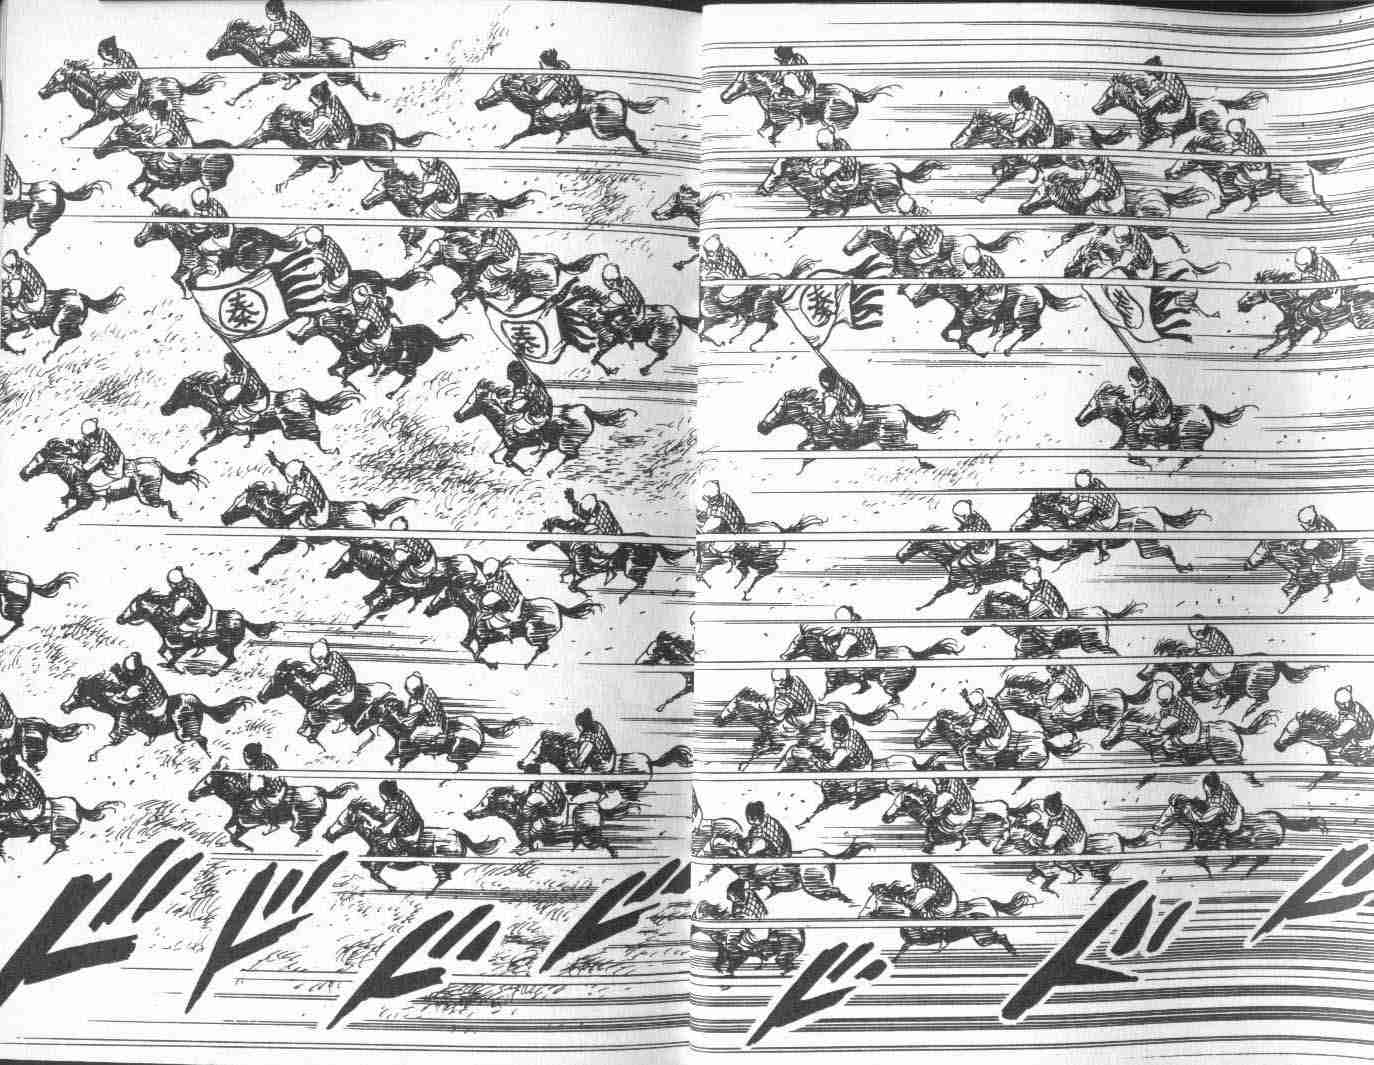 秦
秦
秦
秦
ドドドドドドド